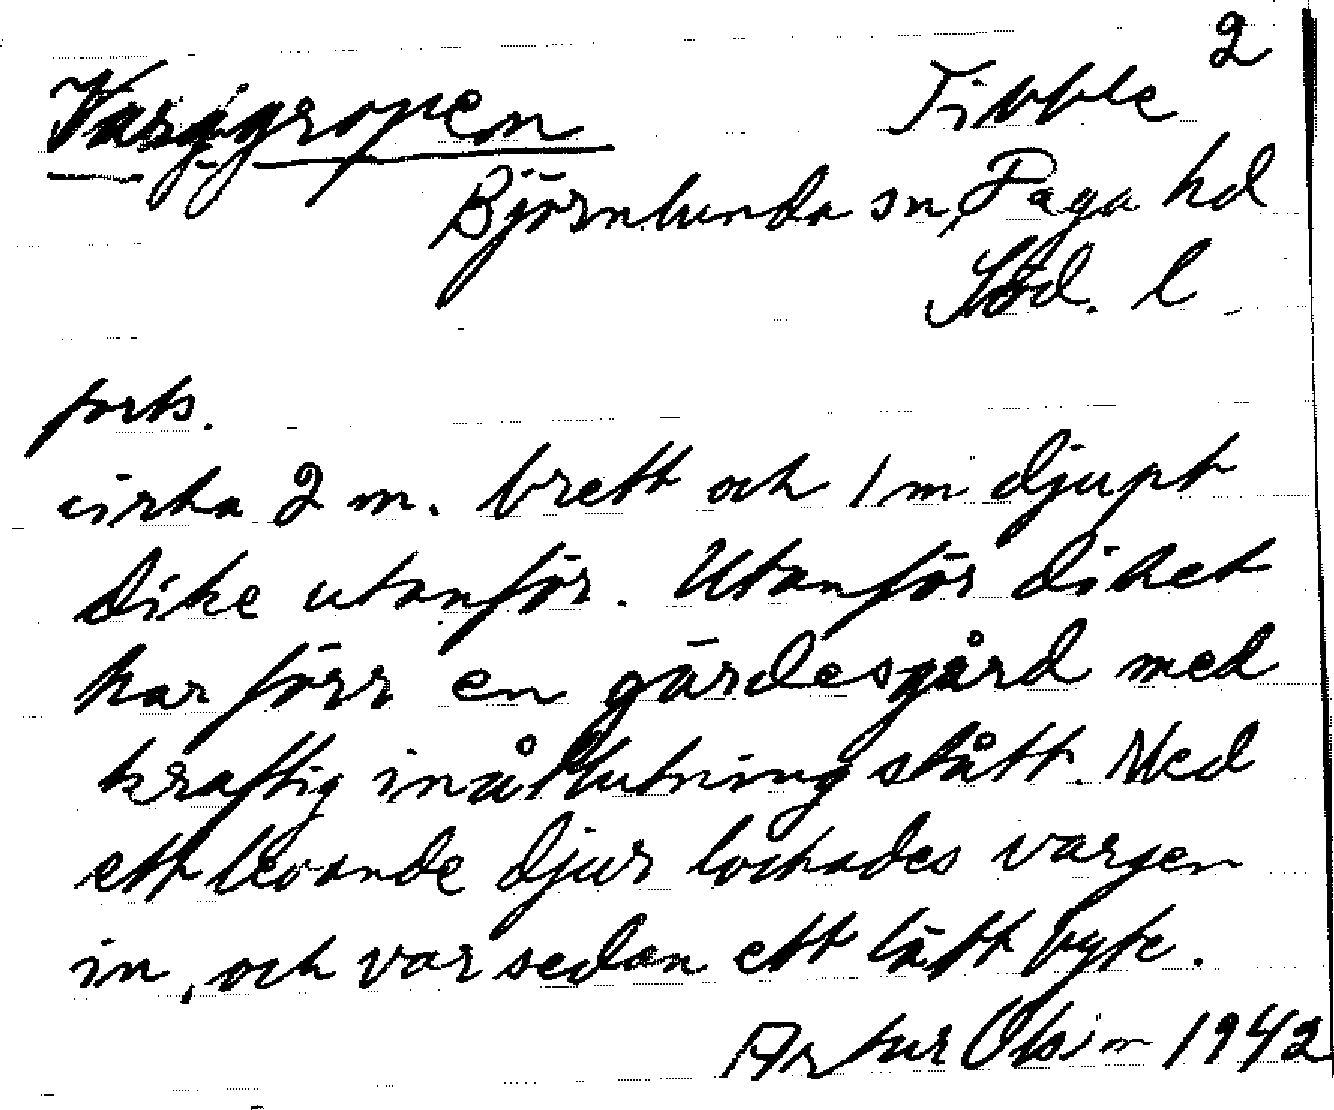 2
Varggropen Tibble
Björnlunda sn, Daga hd
Söd. l
forts.
cirka 2 m. brett och 1 m djupt
dike utanför. Utanför diket
har förr en gärdesgård med
kraftig inåtlutning stått. Med
ett levande djur lockades vargen
in, och var sedan ett lätt byte.
Artur Olsson 1942